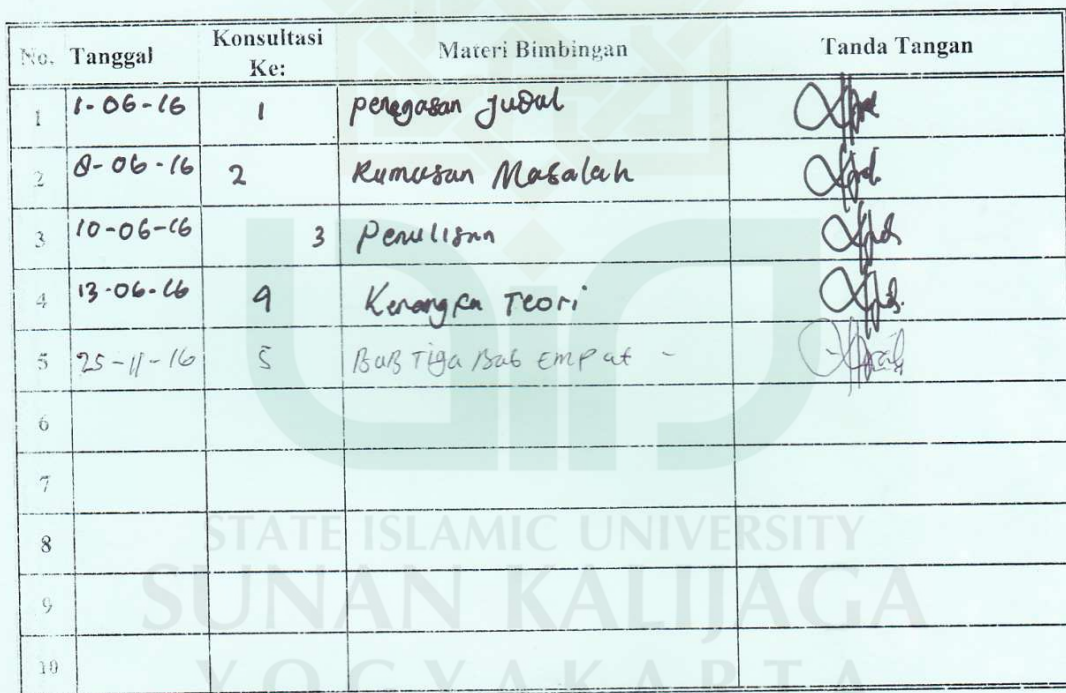 No. Tanggal Konsultasi Ke: Materi Bimbingan Tanda Tangan
1 1-06-16 1 penegasan Judul
2 8-06-16 2 Rumusan Masalah
3 10-06-16 3 Penulisan
4 13-06-16 4 Kerangka Teori
5 25-11-16 5 BaB Tiga Bab Empat -
6
7
8
9
10
STATE ISLAMIC UNIVERSITY
SUNAN KALIJAGA
YOGYAKARTA